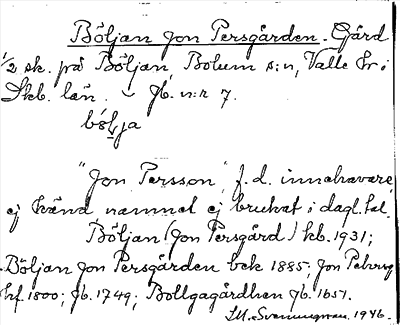 Böljan Jon Persgården. Gård
1/2 sk. på Böljan, Bolum s:n, Valle hr i
Skb. län. – Jb. n:r 7.
bölja
"Jon Persson", f.d. innehavare,
ej känd, namnet ej brukat i dagl. tal.
Böljan (Jon Persgård) kb. 1931;
Böljan Jon Persgården bek 1885; Jon
hf. 1800; Jb. 1749; Bollgagårdhen Jb. 1651.
Sveningman. 1946.